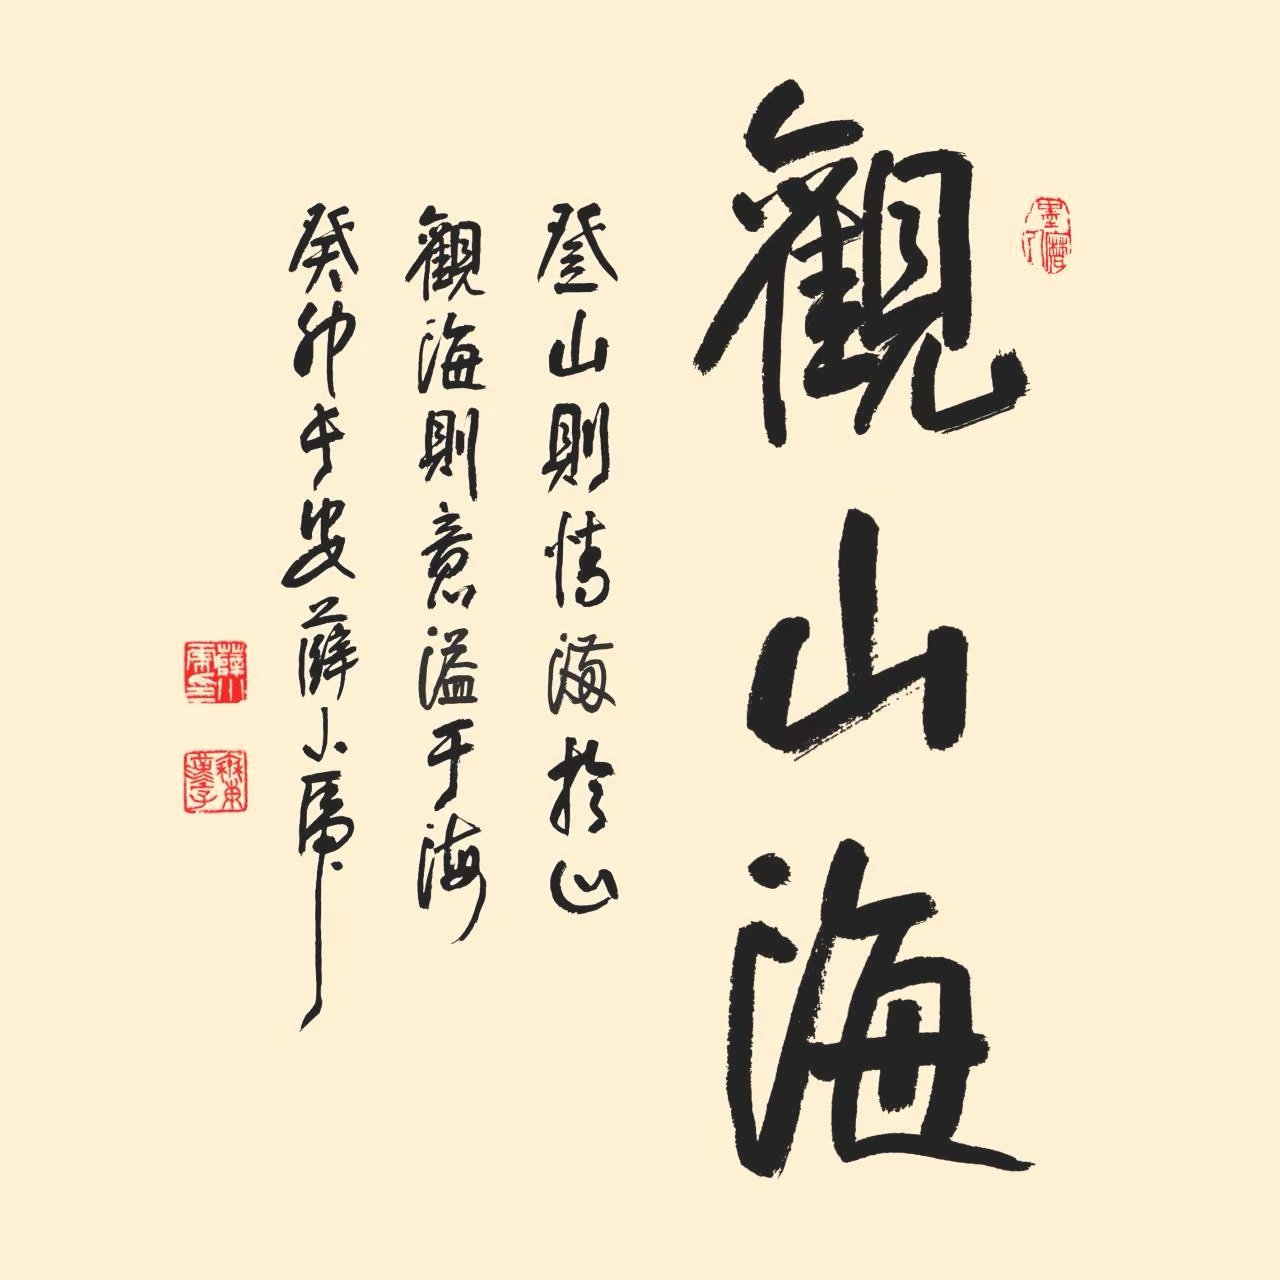 觀山海
登山則情滿於山
觀海則意溢于海
癸卯长安薛小
墨磨人